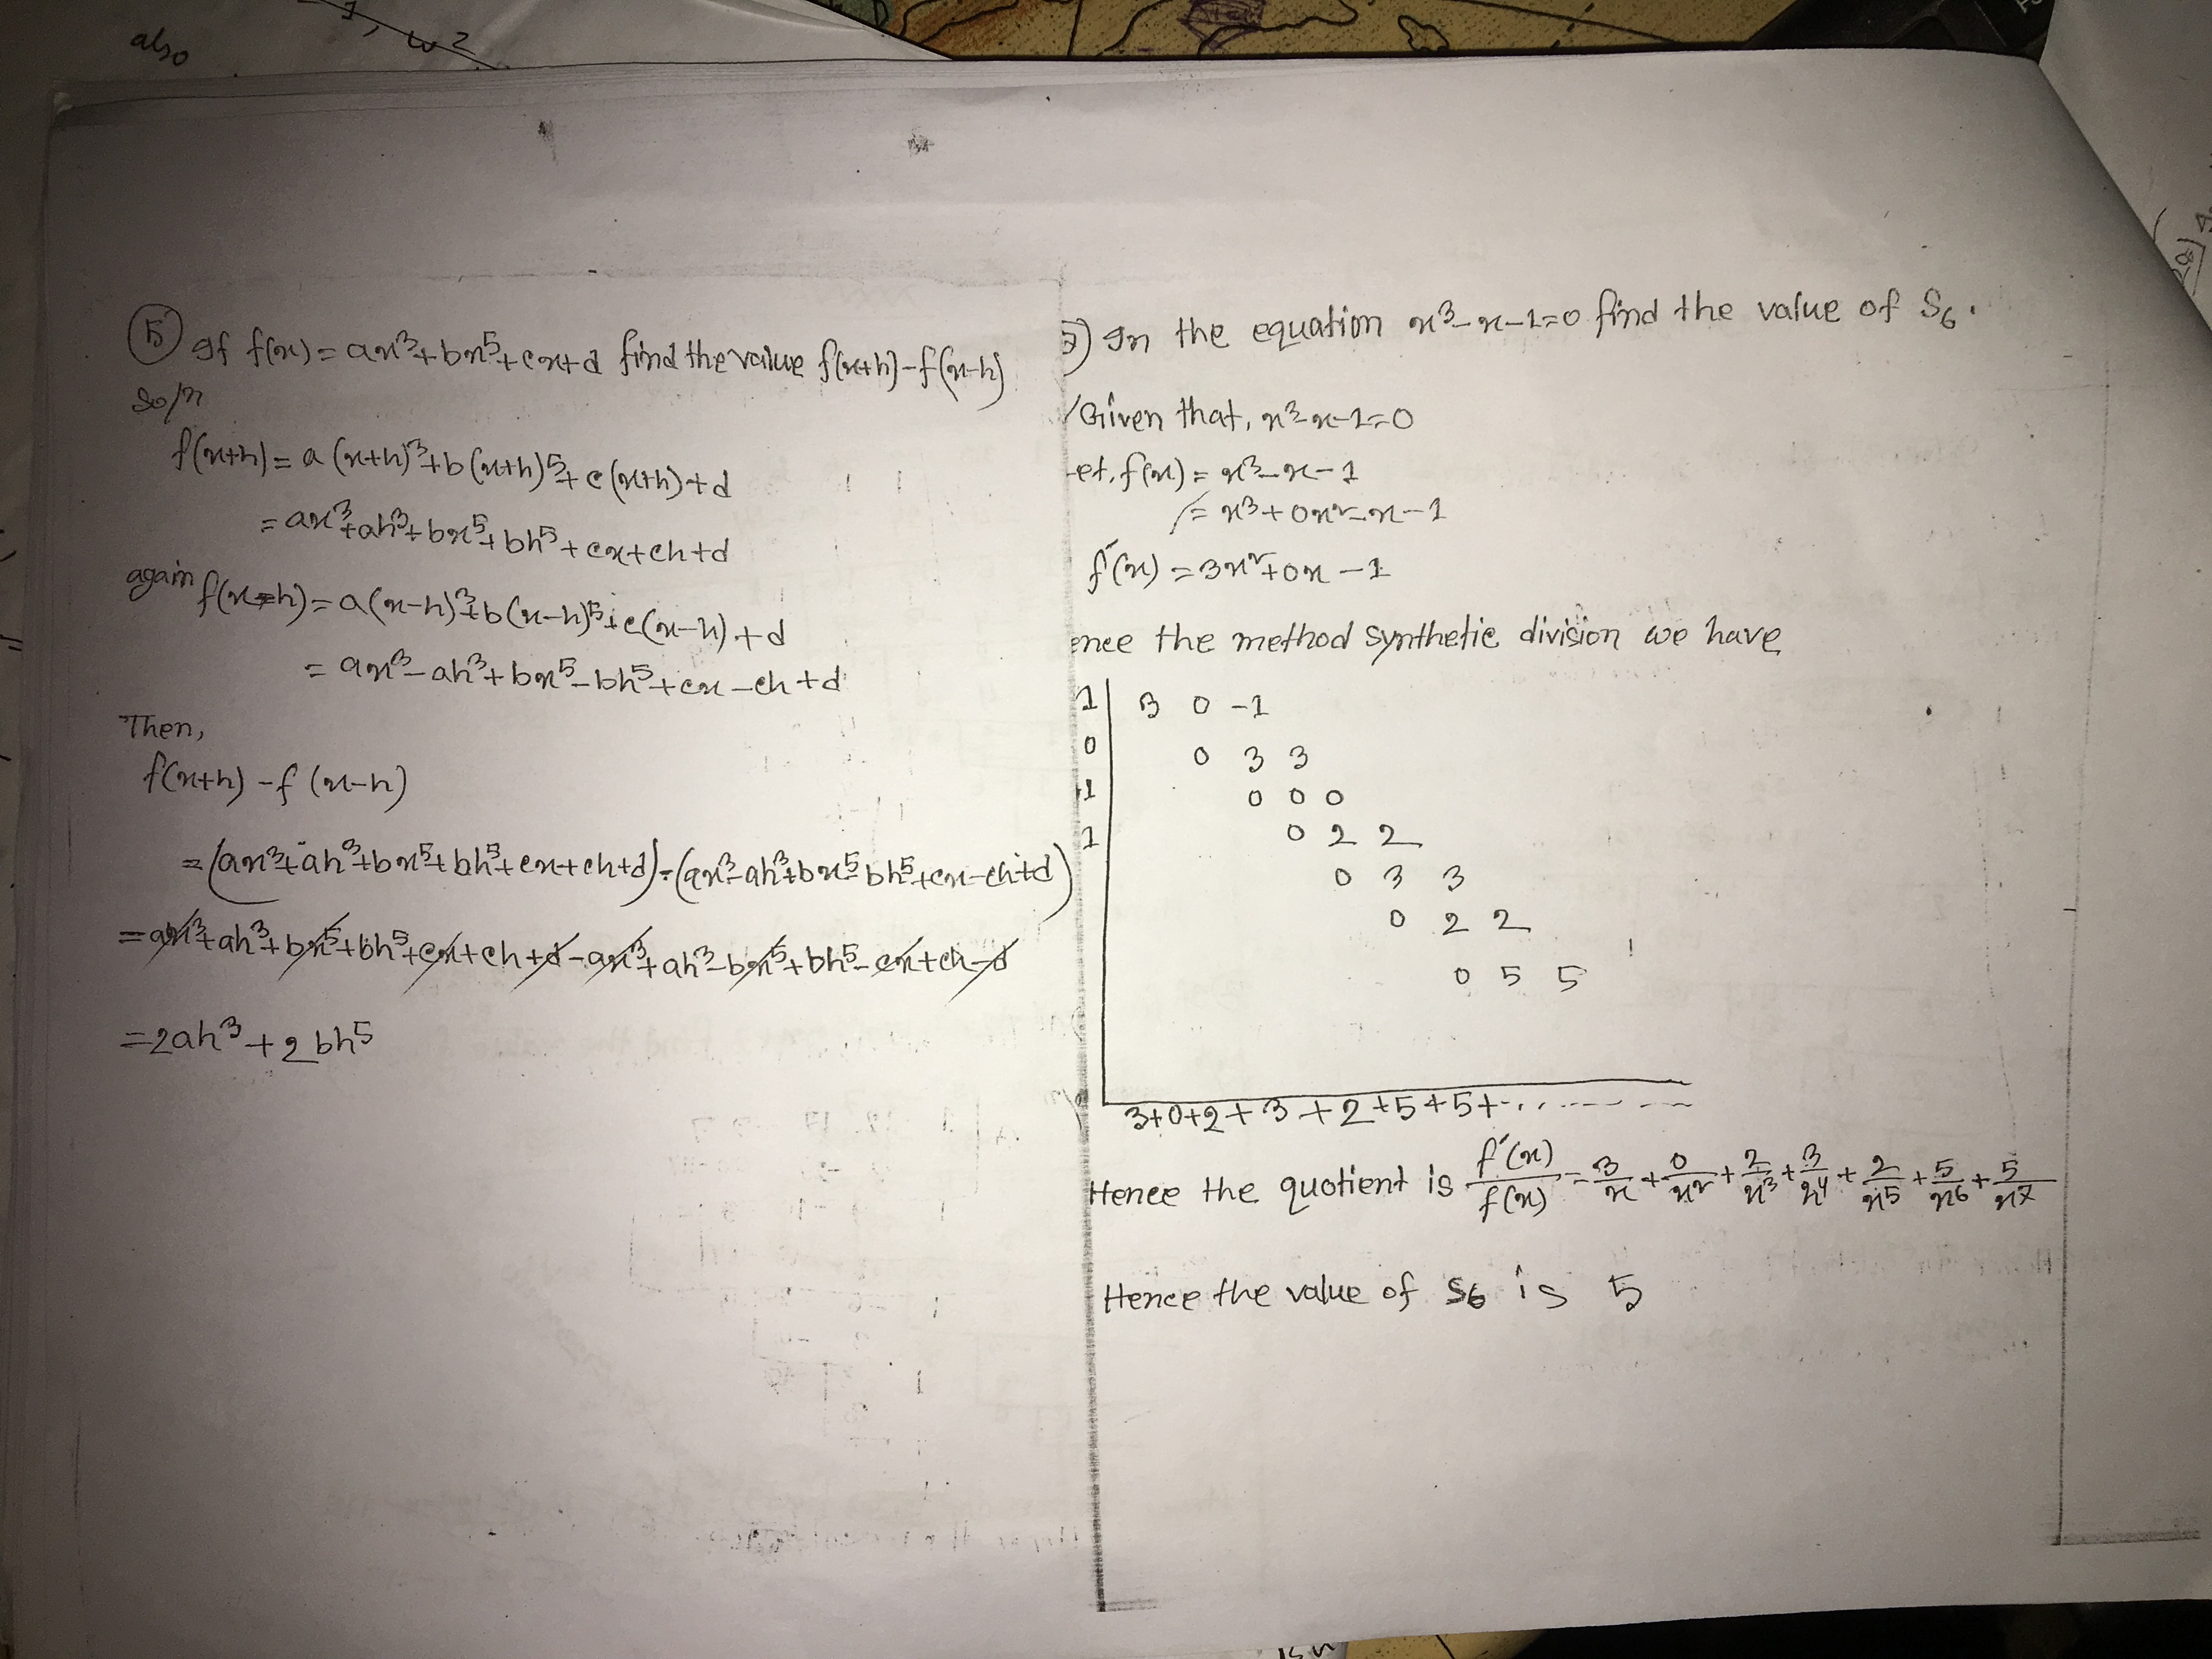 also
1, ω²
⑤ If f(x) = ax³+bx⁵+cx+d find the value f(x+h)-f(x-h)
Soln
f(x+h) = a(x+h)³+b(x+h)⁵+c(x+h)+d
= ax³+ah³+bx⁵+bh⁵+cx+ch+d
again f(x-h) = a(x-h)³+b(x-h)⁵+c(x-h)+d
= ax³-ah³+bx⁵-bh⁵+cx-ch+d
Then,
f(x+h) -f (x-h)
= (ax³+ah³+bx⁵+bh⁵+cx+ch+d)-(ax³-ah³+bx⁵-bh⁵+cx-ch+d)
= ax³+ah³+bx⁵+bh⁵+cx+ch+d-ax³+ah³-bx⁵+bh⁵-cx+ch-d
=2ah³+2bh⁵
) In the equation x³-x-1=0 find the value of S₆.
Given that, x³-x-1=0
et, f(x) = x³-x-1
= x³+0x²-x-1
f′(x) = 3x²+0x-1
ence the method synthetic division we have
1 | 3 0 -1
0 | 0 3 3
1 | 0 0 0
1 | 0 2 2
0 3 3
0 2 2
0 5 5
3+0+2+3+2+5+5+.......
Hence the quotient is f′(x)/f(x) = 3/x + 0/x² + 2/x³ + 3/x⁴ + 2/x⁵ + 5/x⁶ + 5/x⁷
Hence the value of S₆ is 5